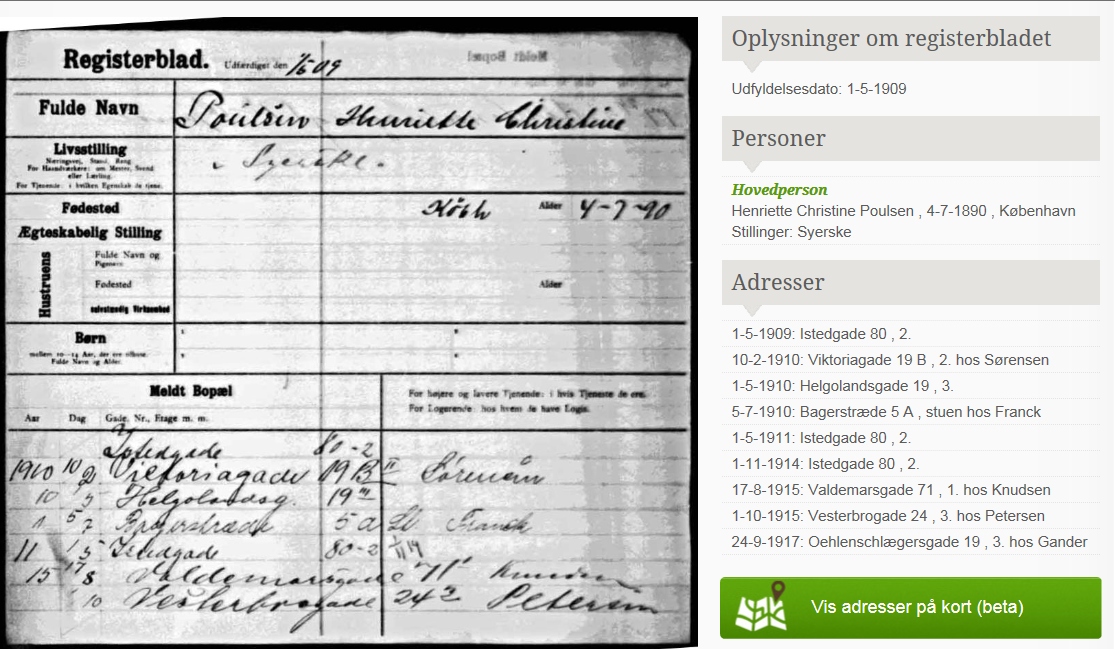 Registerblad. Udfærdiget den 1/5 09
Meldt Bopæl
Fulde Navn Poulsen Henriette Christine
Livsstilling Syerske.
Næringsvej, Stand, Rang.
For Haandværkere: om Mester, Svend
eller Lærling.
For Tjenende: i hvilken Egenskab de tjene.
Fødested Kbh Alder 4-7-90
Ægteskabelig Stilling
Hustruens
Fulde Navn og
Pigenavn
Fødested Alder
selvstændig Virksomhed
Børn
mellem 10-14 Aar, der ere tilhuse.
Fulde Navn og Alder.
Meldt Bopæl
For højere og lavere Tjenende: i hvis Tjeneste de ere.
For Logerende: hos hvem de have Logis.
Aar Dag Gade, Nr., Etage m. m.
Istedgade 80-2
1910 10/2 Victoriagade 19B II Sørensen
10 1/5 Helgolandsg. 19
5/7 Bagerstræde 5a St Franck
11 1/5 Istedgade 80-2 1/11 14
15 17/8 Valdemarsgade 71 Knudsen
1/10 Vesterbrogade 24 3 Petersen
Oplysninger om registerbladet
Udfyldelsesdato: 1-5-1909
Personer
Hovedperson
Henriette Christine Poulsen , 4-7-1890 , København
Stillinger: Syerske
Adresser
1-5-1909: Istedgade 80 , 2.
10-2-1910: Viktoriagade 19 B , 2. hos Sørensen
1-5-1910: Helgolandsgade 19 , 3.
5-7-1910: Bagerstræde 5 A , stuen hos Franck
1-5-1911: Istedgade 80 , 2.
1-11-1914: Istedgade 80 , 2.
17-8-1915: Valdemarsgade 71 , 1. hos Knudsen
1-10-1915: Vesterbrogade 24 , 3. hos Petersen
24-9-1917: Oehlenschlægersgade 19 , 3. hos Gander
Vis adresser på kort (beta)